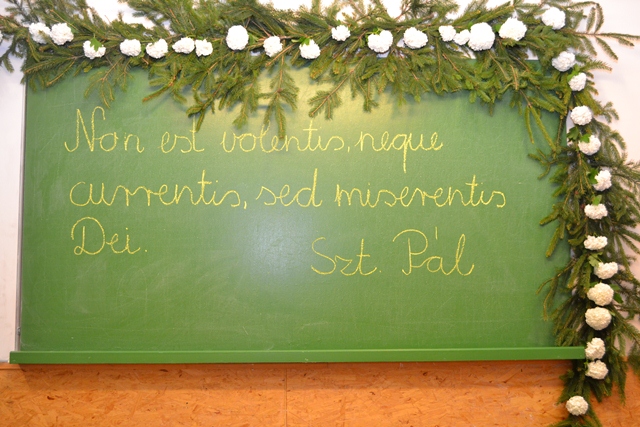 Non est volentis, neque
currentis, sed miserentis
Dei.
Szt. Pál